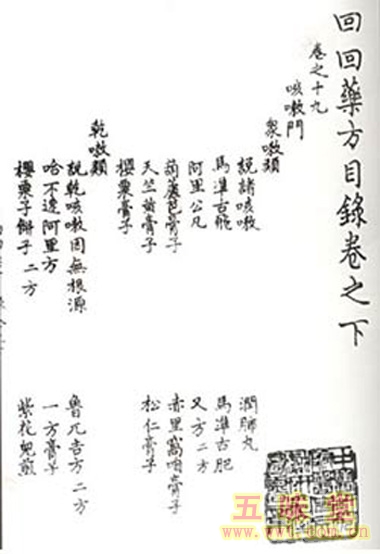 回回藥方目錄卷之下
卷之十九
咳嗽門
衆嗽類
說諸咳嗽
潤肺丸
馬準古飛
馬準古肥
阿里公凡
又方二方
葫蘆芭膏子
赤里窩咱膏子
天竺黃膏子
松仁膏子
櫻粟膏子
乾嗽類
說乾咳嗽因無根源
魯兀吉方 二方
哈不達阿里方
一方膏子
櫻粟子餅子 二方
紫花兒煎
www.
.com.cn